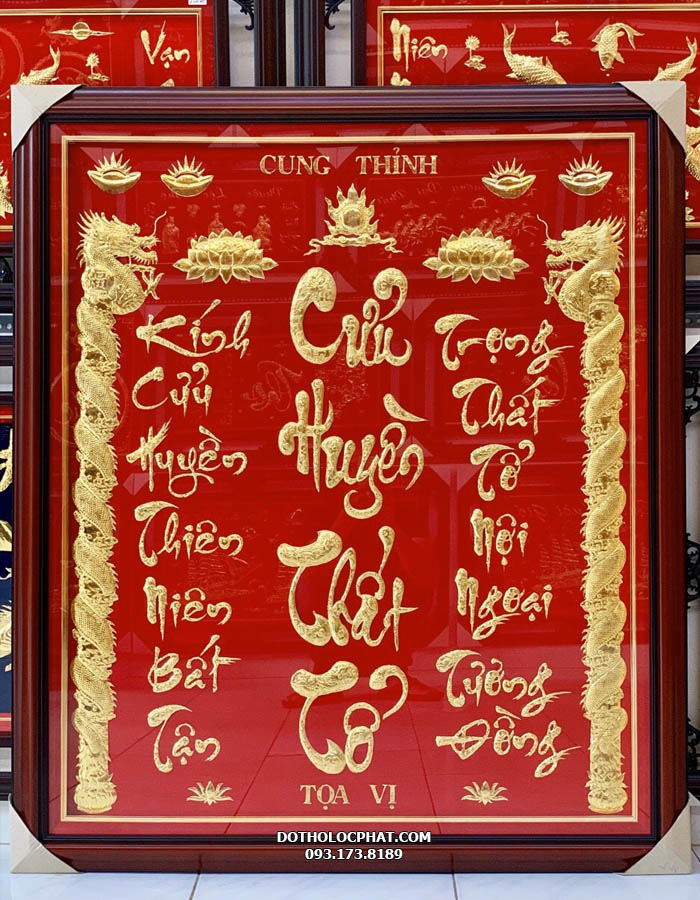 Vạn
Niên
CUNG THỈNH
Kính
Cửu
Huyền
Thiên
Niên
Bất
Tận
Cửu
Huyền
Thất
Tổ
Trọng
Thất
Tổ
Nội
Ngoại
Tưởng
Đồng
TỌA VỊ
DOTHOLOCPHAT.COM
093.173.8189